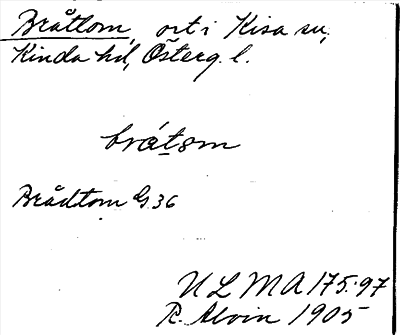 Bråttom, ort i Kisa sn,
Kinda hd, Österg. l.
bråt8m
Brådtom G.36
ULMA 175:97
R. Alvin 1905